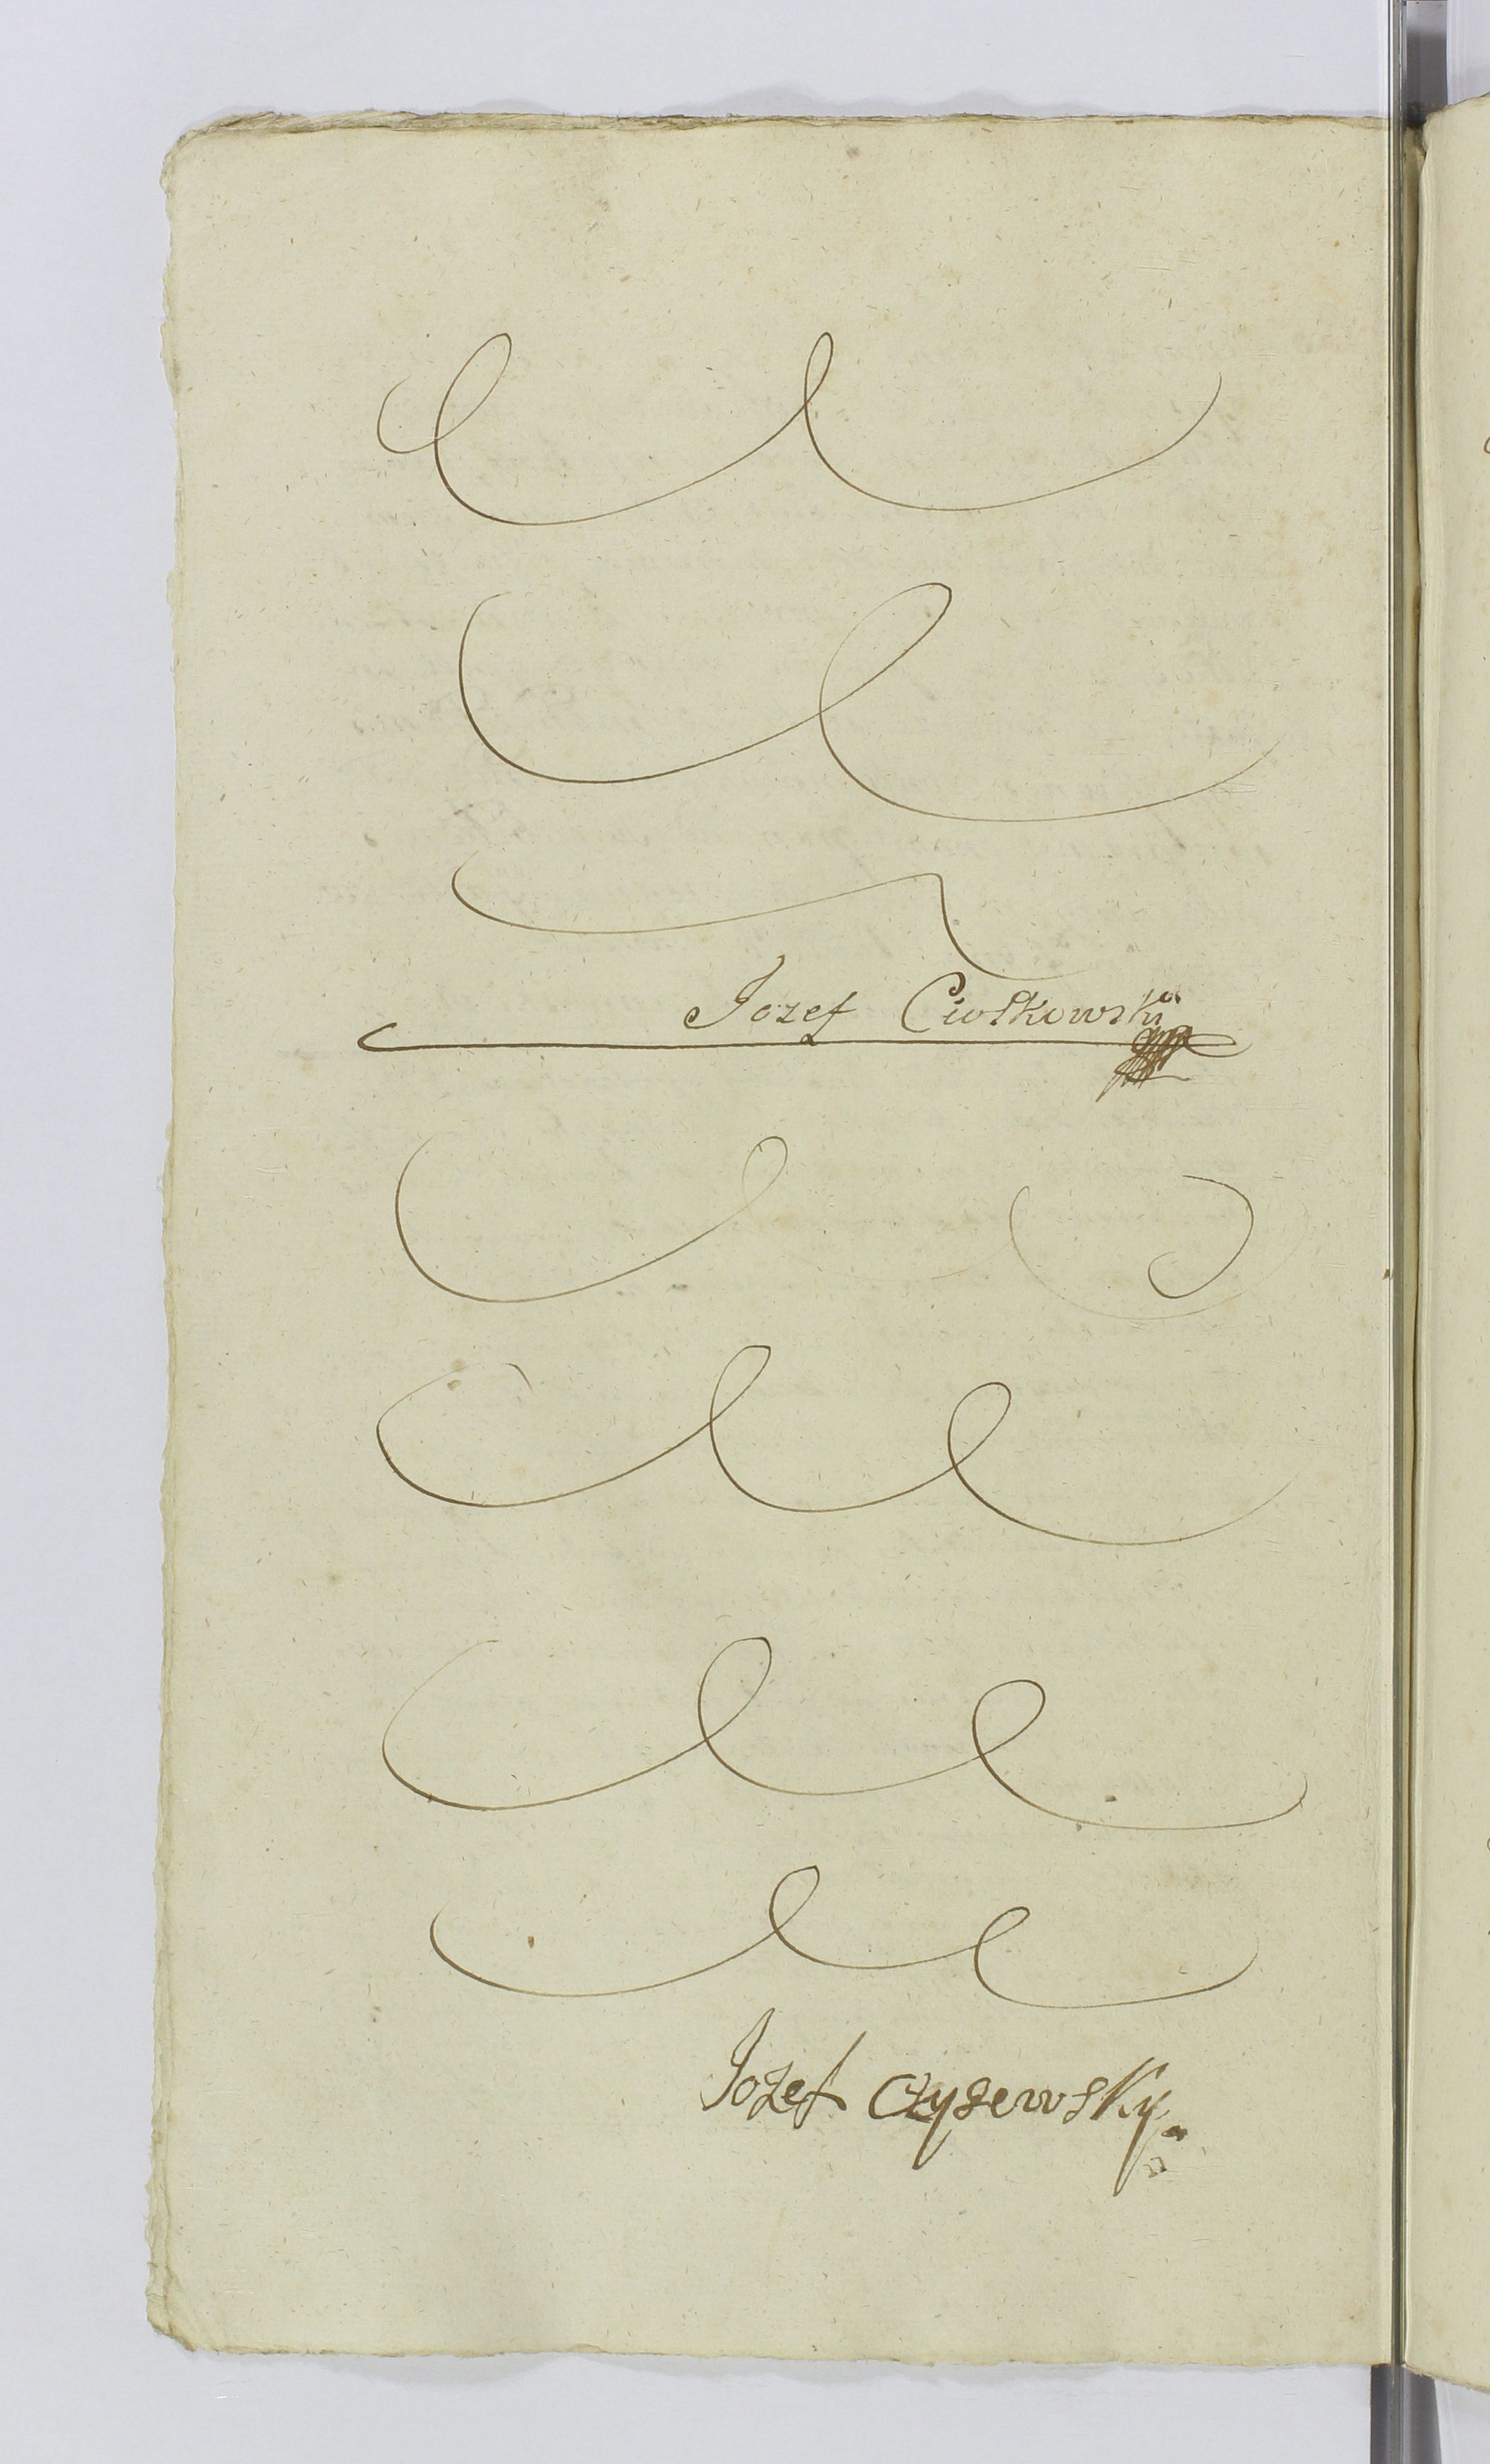 Jozef Ciołkowski
Jozef Czyzewsky.